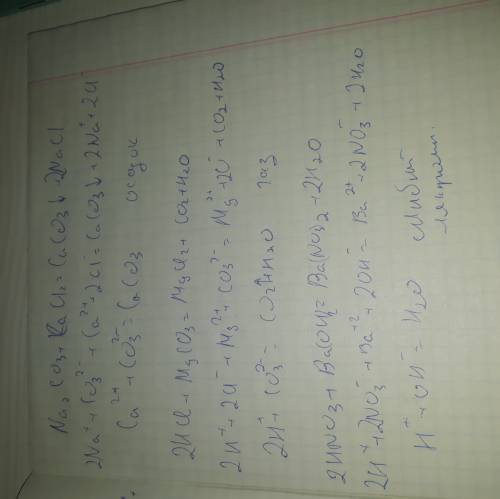 Na₂CO₃ + BaCl₂ = CaCO₃↓ + 2NaCl
2Na⁺ + CO₃²⁻ + Ca²⁺ + 2Cl⁻ = CaCO₃↓ + 2Na⁺ + 2Cl
Ca²⁺ + CO₃²⁻ = CaCO₃ осадок
2HCl + MgCO₃ = MgCl₂ + CO₂ + H₂O
2H⁺ + 2Cl⁻ + Mg²⁺ + CO₃²⁻ = Mg²⁺ + 2Cl⁻ + CO₂ + H₂O
2H⁺ + CO₃²⁻ = CO₂↑ + H₂O газ
2HNO₃ + Ba(OH)₂ = Ba(NO₃)₂ + 2H₂O
2H⁺ + 2NO₃⁻ + Ba⁺² + 2OH⁻ = Ba²⁺ + 2NO₃⁻ + 2H₂O
H⁺ + OH⁻ = H₂O